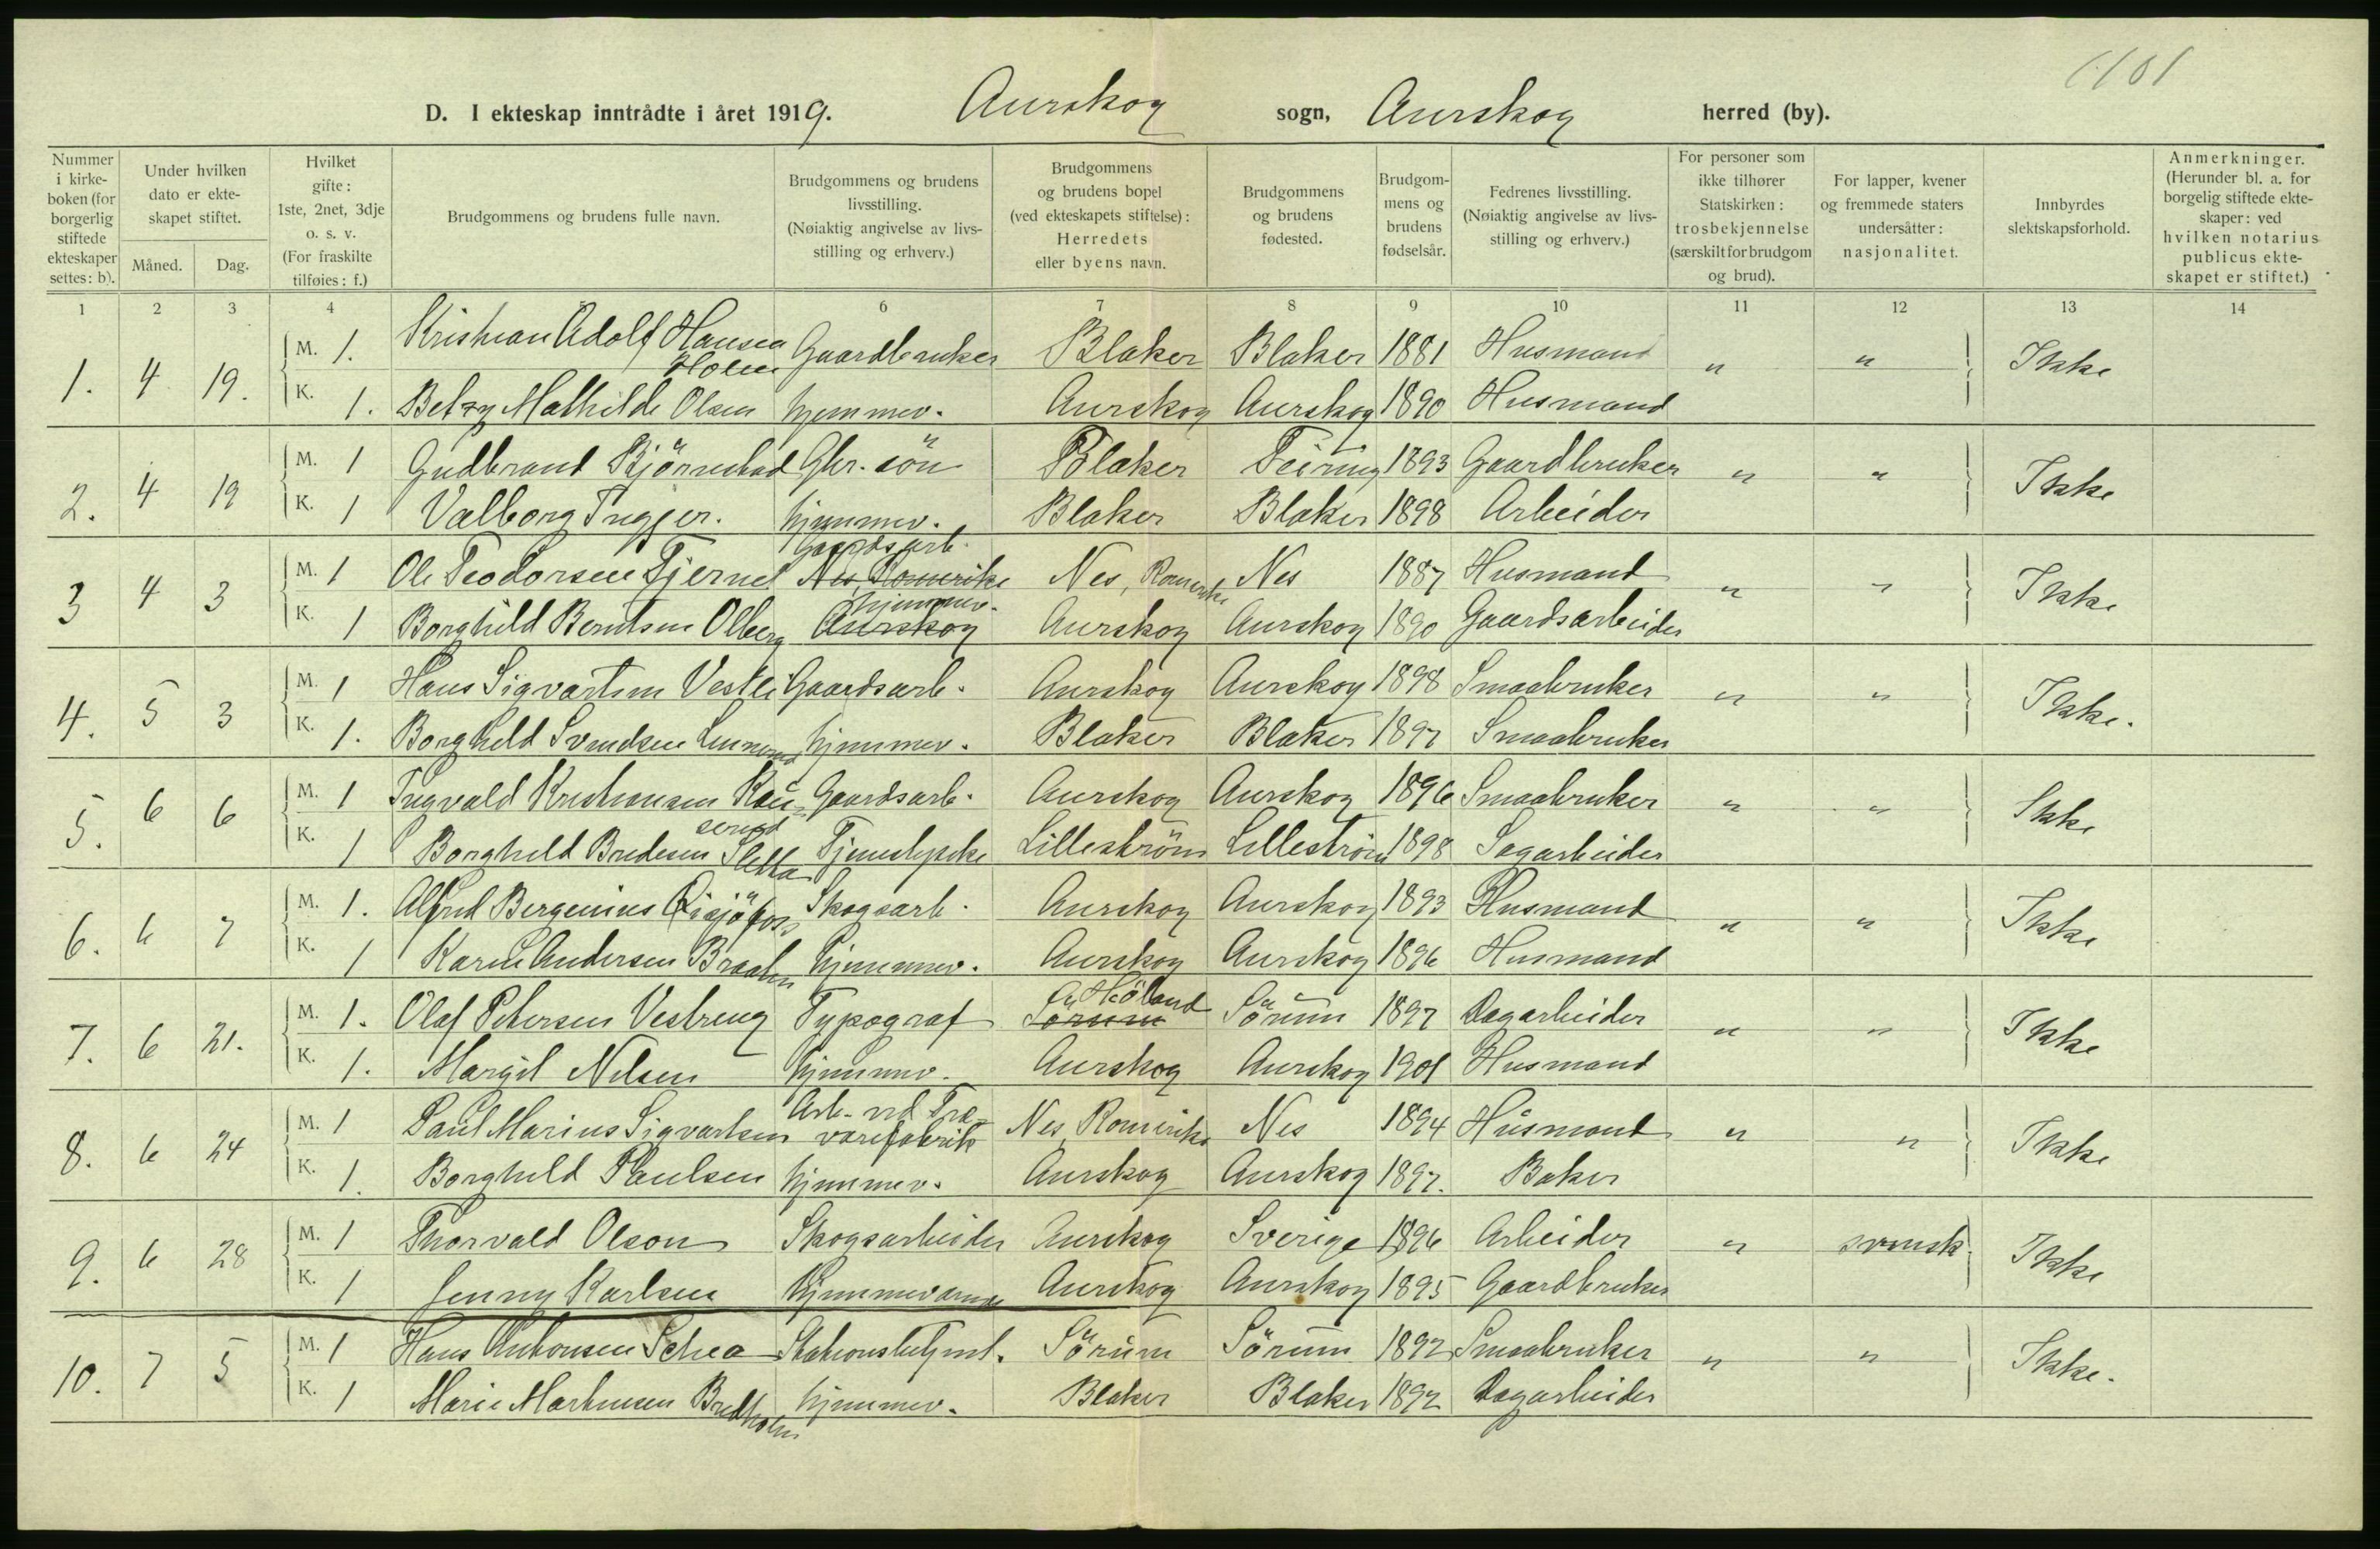 1101
D. I ekteskap inntrådte i året 1919. Aurskog sogn, Aurskog herred (by).
Nummer i kirkeboken (for borgerlig stiftede ekteskaper settes: b).
Under hvilken dato er ekteskapet stiftet.
Måned. Dag.
Hvilket gifte: 1ste, 2net, 3dje o. s. v. (For fraskilte tilføies: f.)
Brudgommens og brudens fulle navn.
Brudgommens og brudens livsstilling. (Nøiaktig angivelse av livsstilling og erhverv.)
Brudgommens og brudens bopel (ved ekteskapets stiftelse): Herredets eller byens navn.
Brudgommens og brudens fødested.
Brudgommens og brudens fødselsår.
Fedrenes livsstilling. (Nøiaktig angivelse av livsstilling og erhverv.)
For personer som ikke tilhører Statskirken: trosbekjennelse (særskilt for brudgom og brud).
For lapper, kvener og fremmede staters undersåtter: nasjonalitet.
Innbyrdes slektskapsforhold.
Anmerkninger. (Herunder bl. a. for borgelig stiftede ekteskaper: ved hvilken notarius publicus ekteskapet er stiftet.)
1 2 3 4 5 6 7 8 9 10 11 12 13 14
1. 4 19. M. 1. Kristian Adolf Hansen Holm Gaardbruker Blaker Blaker 1881 Husmand " " Ikke
K. 1. Betzy Mathilde Olsen hjemmev. Aurskog Aurskog 1890 Husmand
2. 4 19 M. 1 Gudbrand Björnstad Gbr. sön Blaker Feiring 1893 Gaardbruker " " Ikke
K. 1 Valborg Trygger. hjemmev. Blaker Blaker 1898 Arbeider
3 4 3 M. 1 Ole Teodorsen Tjernel Gaardsarb. Nes Romerike Nes, Romerike Nes 1887 Husmand " " Ikke
K. 1 Borghild Berntsen Olberg hjemmev. Aurskog Aurskog Aurskog 1890 Gaardsarbeider
4. 5 3 M. 1 Hans Sigvartsen Vestli Gaardsarb. Aurskog Aurskog 1898 Smaabruker " " Ikke.
K. 1. Borghild Svendsen hjemmev. Blaker Blaker 1897 Smaabruker
5. 6 6 M. 1 Ingvald Kristiansen Kauserud Gaardsarb. Aurskog Aurskog 1896 Smaabruker " " Ikke
K. 1 Borghild Bredesen Sletta Tjenestepike Lilleström Lilleström 1898 Sagarbeider
6. 6 7 M. 1. Alfred Bergenius Skogsarb. Aurskog Aurskog 1893 Husmand " " Ikke
K. 1 Karen Andersen Braaten hjemmev. Aurskog Aurskog 1896 Husmand
7. 6 21. M. 1. Olaf Petersen Vestreng Typograf Höland Sörum Sörum 1897 Dagarbeider " " Ikke
K. 1. Margit Nilsen hjemmev. Aurskog Aurskog 1901 Husmand
8. 6 24 M. 1 Paul Marius Sigvartsen Arb. ved Trævarefabrik Nes, Romerike Nes 1894 Husmand " " Ikke
K. 1. Borghild Paulsen hjemmev. Aurskog Aurskog 1897. Baker
9. 6 28 M. 1 Thorvald Olson Skogsarbeider Aurskog Sverige 1896 Arbeider " svensk. Ikke
K. 1 Jenny Karlsen Hjemmeværende Aurskog Aurskog 1895 Gaardbruker
10. 7 5 M. 1 Hans Antonsen Schea Stationsbetjent. Sörum Sörum 1892 Smaabruker " " Ikke.
K. 1 Marie Martinsen Bredholm hjemmev. Blaker Blaker 1892 Dagarbeider